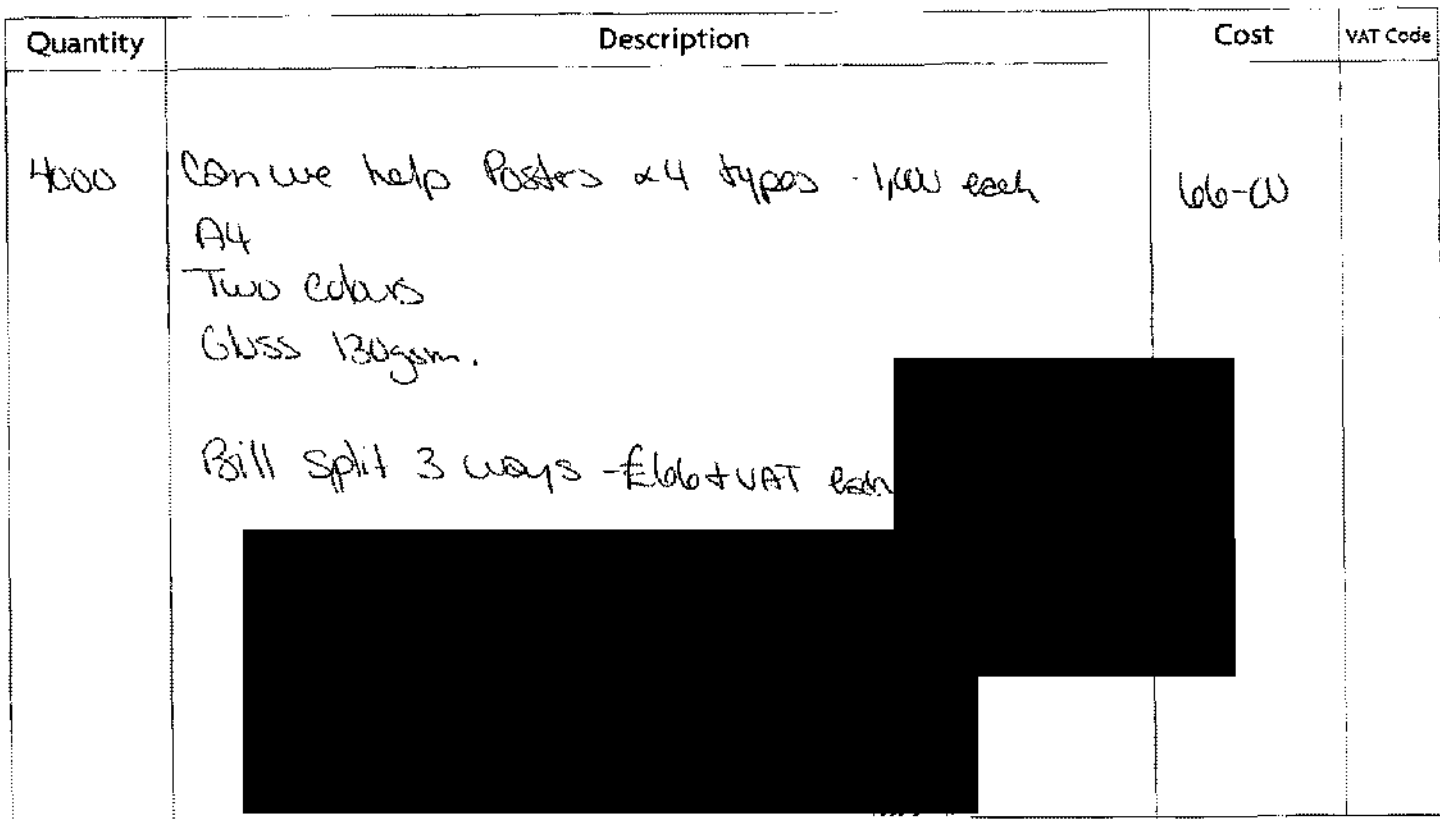 Quantity Description Cost VAT Code
4000 Can we help Posters x4 types - 1,000 each 66-00
A4
Two colours
Gloss 130gsm.
Bill split 3 ways - £66 + VAT each